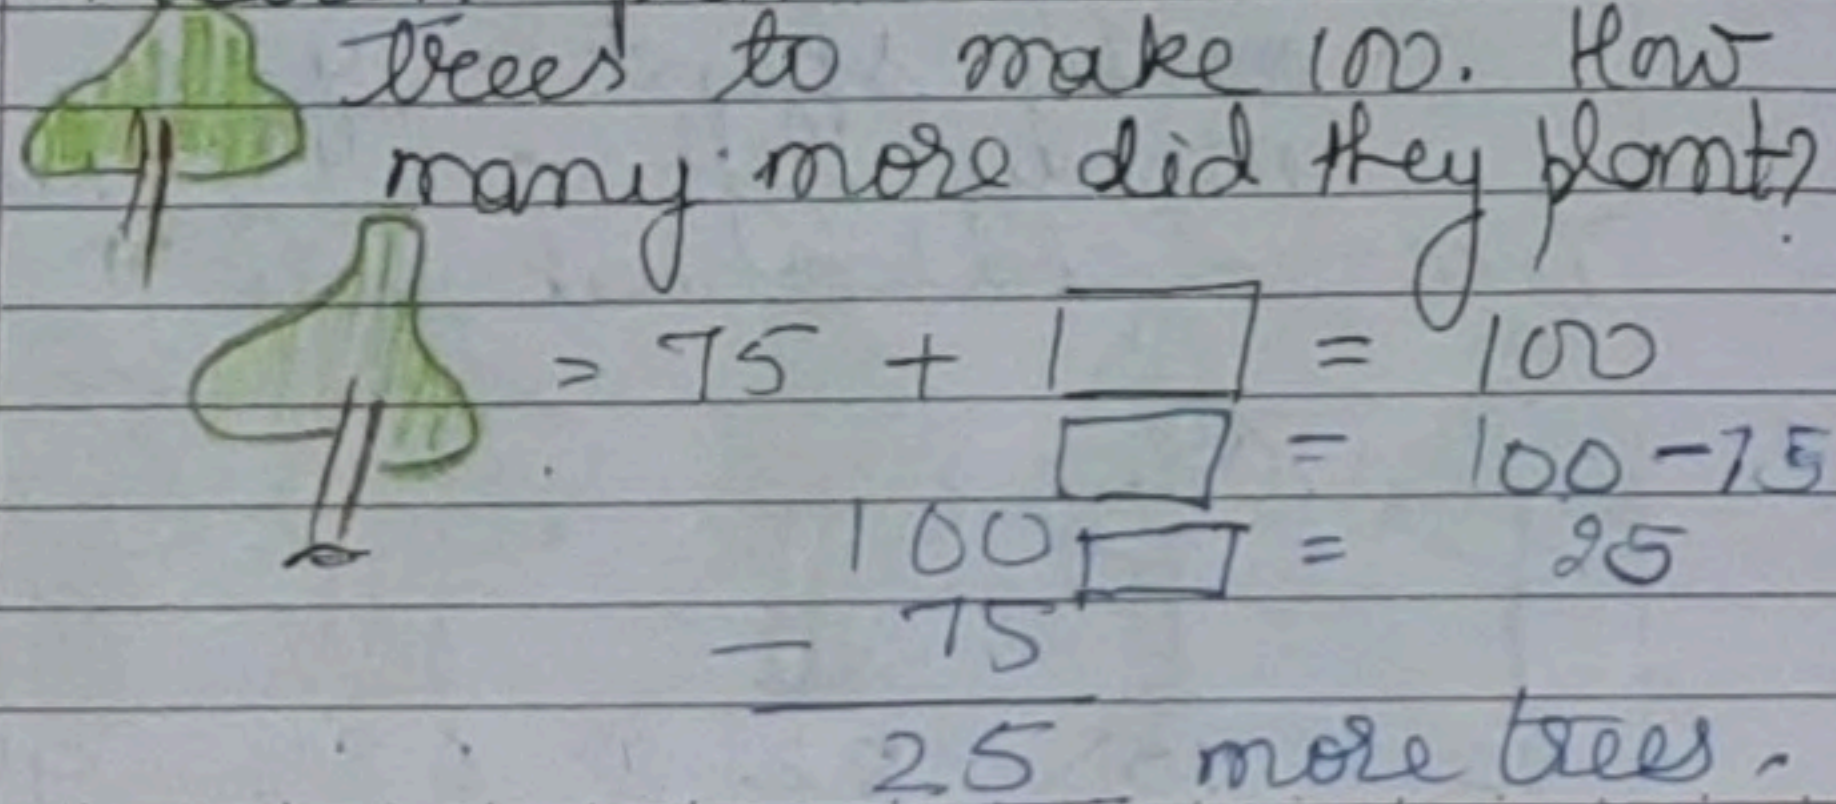 trees to make 100. How
many more did they plant?
= 75 + □ = 100
□ = 100 - 75
100 □ = 25
- 75
25 more trees.